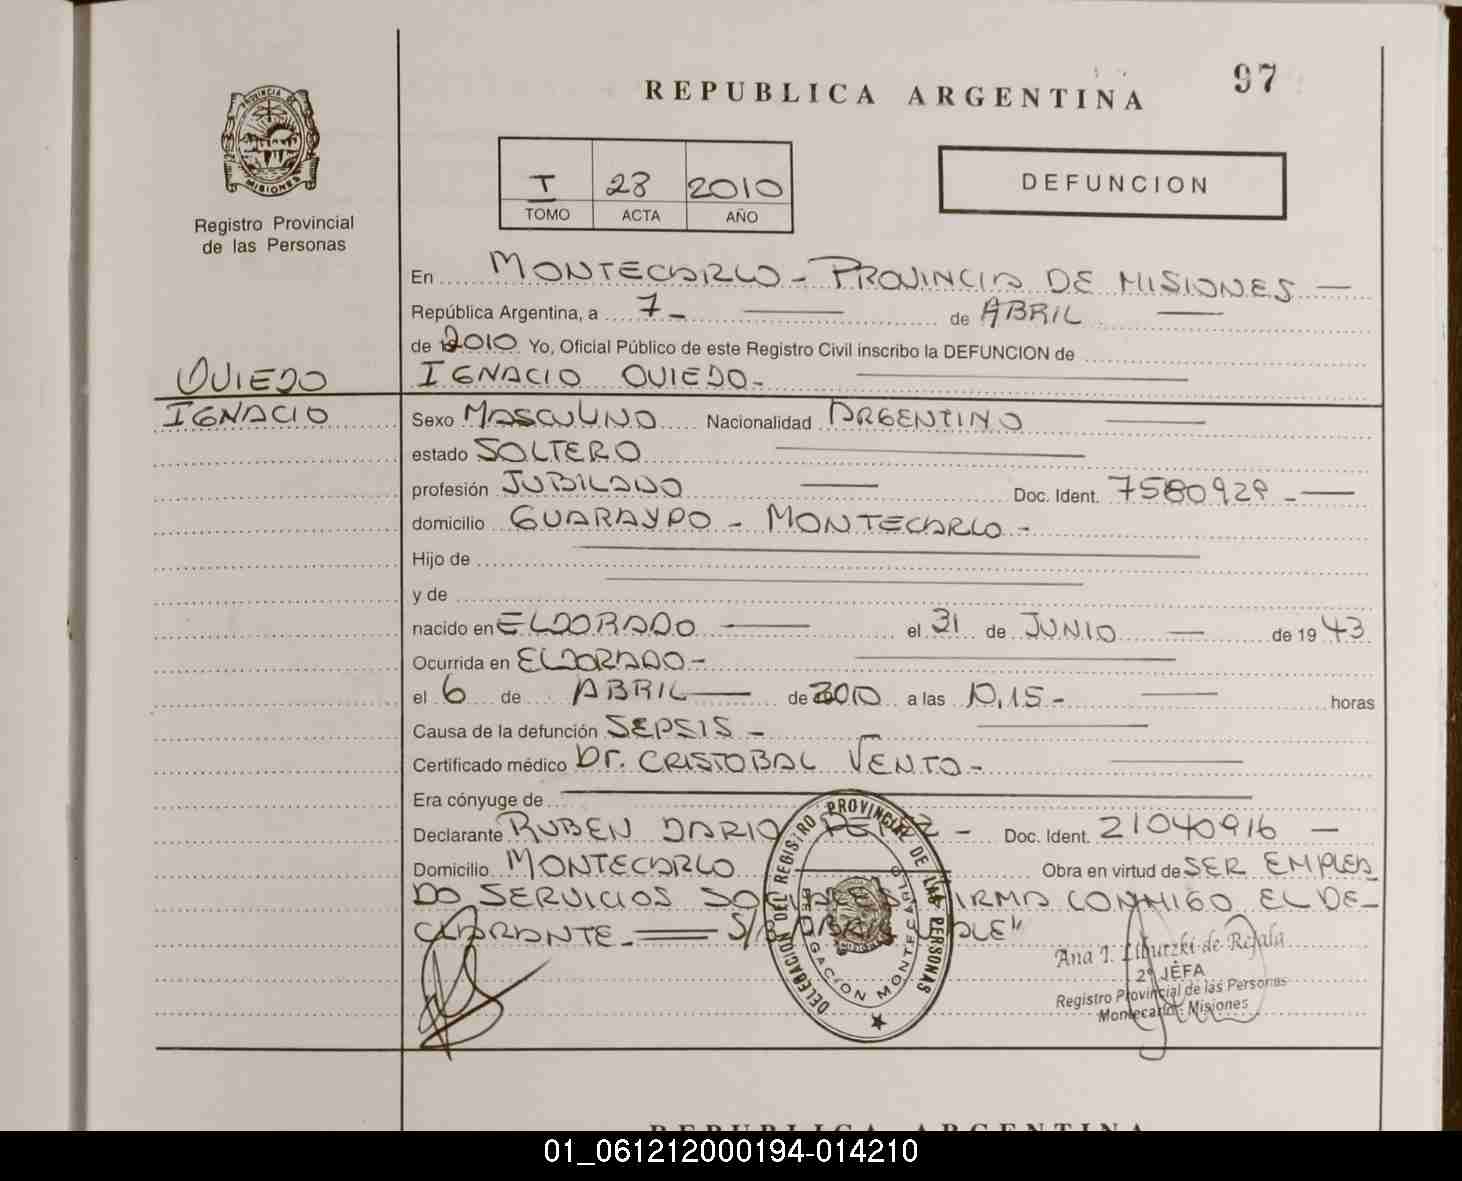 97
REPUBLICA ARGENTINA
PROVINCIA DE
MISIONES
Registro Provincial
de las Personas
I 28 2010
TOMO ACTA AÑO
DEFUNCION
En MONTECARLO - PROVINCIA DE MISIONES —
República Argentina, a 7 - — de ABRIL —
de 2010 Yo, Oficial Público de este Registro Civil inscribo la DEFUNCION de
OVIEDO IGNACIO OVIEDO - —
IGNACIO Sexo MASCULINO Nacionalidad ARGENTINO —
estado SOLTERO —
profesión JUBILADO — Doc. Ident. 7580929 - —
domicilio GUARAYPO - MONTECARLO -
Hijo de —
y de —
nacido en ELDORADO — el 31 de JUNIO — de 1943
Ocurrida en ELDORADO - —
el 6 de ABRIL — de 2010 a las 10,15 - — horas
Causa de la defunción SEPSIS - —
Certificado médico Dr. CRISTOBAL VENTO - —
Era cónyuge de —
Declarante RUBEN DARIO - Doc. Ident. 21040916 —
Domicilio MONTECARLO — Obra en virtud de SER EMPLEA
DO SERVICIOS SOCIALES FIRMA CONMIGO EL DE-
CLARANTE - — VALE"
DELEGACION DEL REGISTRO PROVINCIAL DE LAS PERSONAS
DELEGACION MONTECARLO
Ana I. Libutzki de Rejala
2º JEFA
Registro Provincial de las Personas
Montecarlo - Misiones
REPUBLICA ARGENTINA
01_061212000194-014210